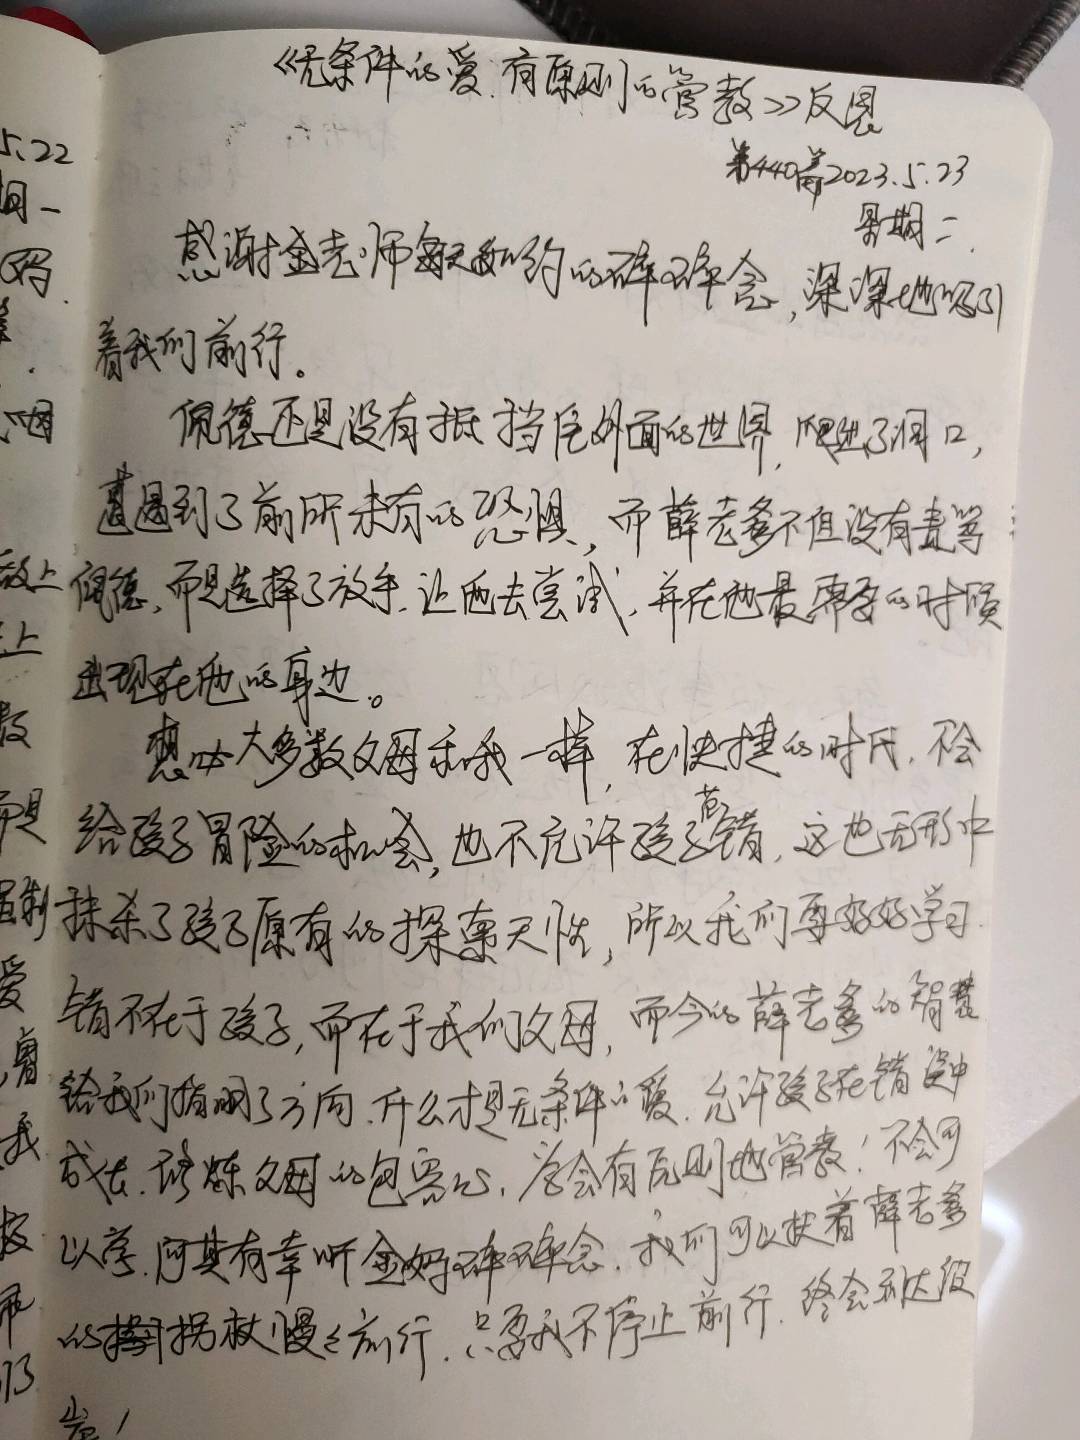 《无条件的爱.有原则的管教》反思
第440篇2023.5.23
星期二.
感谢金老师每天如约的碎碎念,深深地吸引
着我们前行。
佩德还是没有抵挡住外面的世界,爬出了洞口,
遭遇到了前所未有的恐惧,而薛老爹不但没有责骂
佩德,而是选择了放手.让他去尝试,并在他最需要的时候
出现在他的身边。
想必大多数父母和我一样,在快捷的时代,不会
给孩子冒险的机会,也不允许孩子犯错,这也无形中
抹杀了孩子原有的探索天性,所以我们要好好学习.
错不在于孩子,而在于我们父母,而今的薛老爹的智慧
给我们指明了方向.什么才是无条件的爱.允许孩子在错误中
成长.修炼父母的包容心,学会有原则地管教!不会可
以学.何其有幸听金妈碎碎念.我们可以扶着薛老爹
的拐杖慢々前行.只要我不停止前行.终会到达彼
岸!
5.22
期一
码.
上
教
而是
爱
我